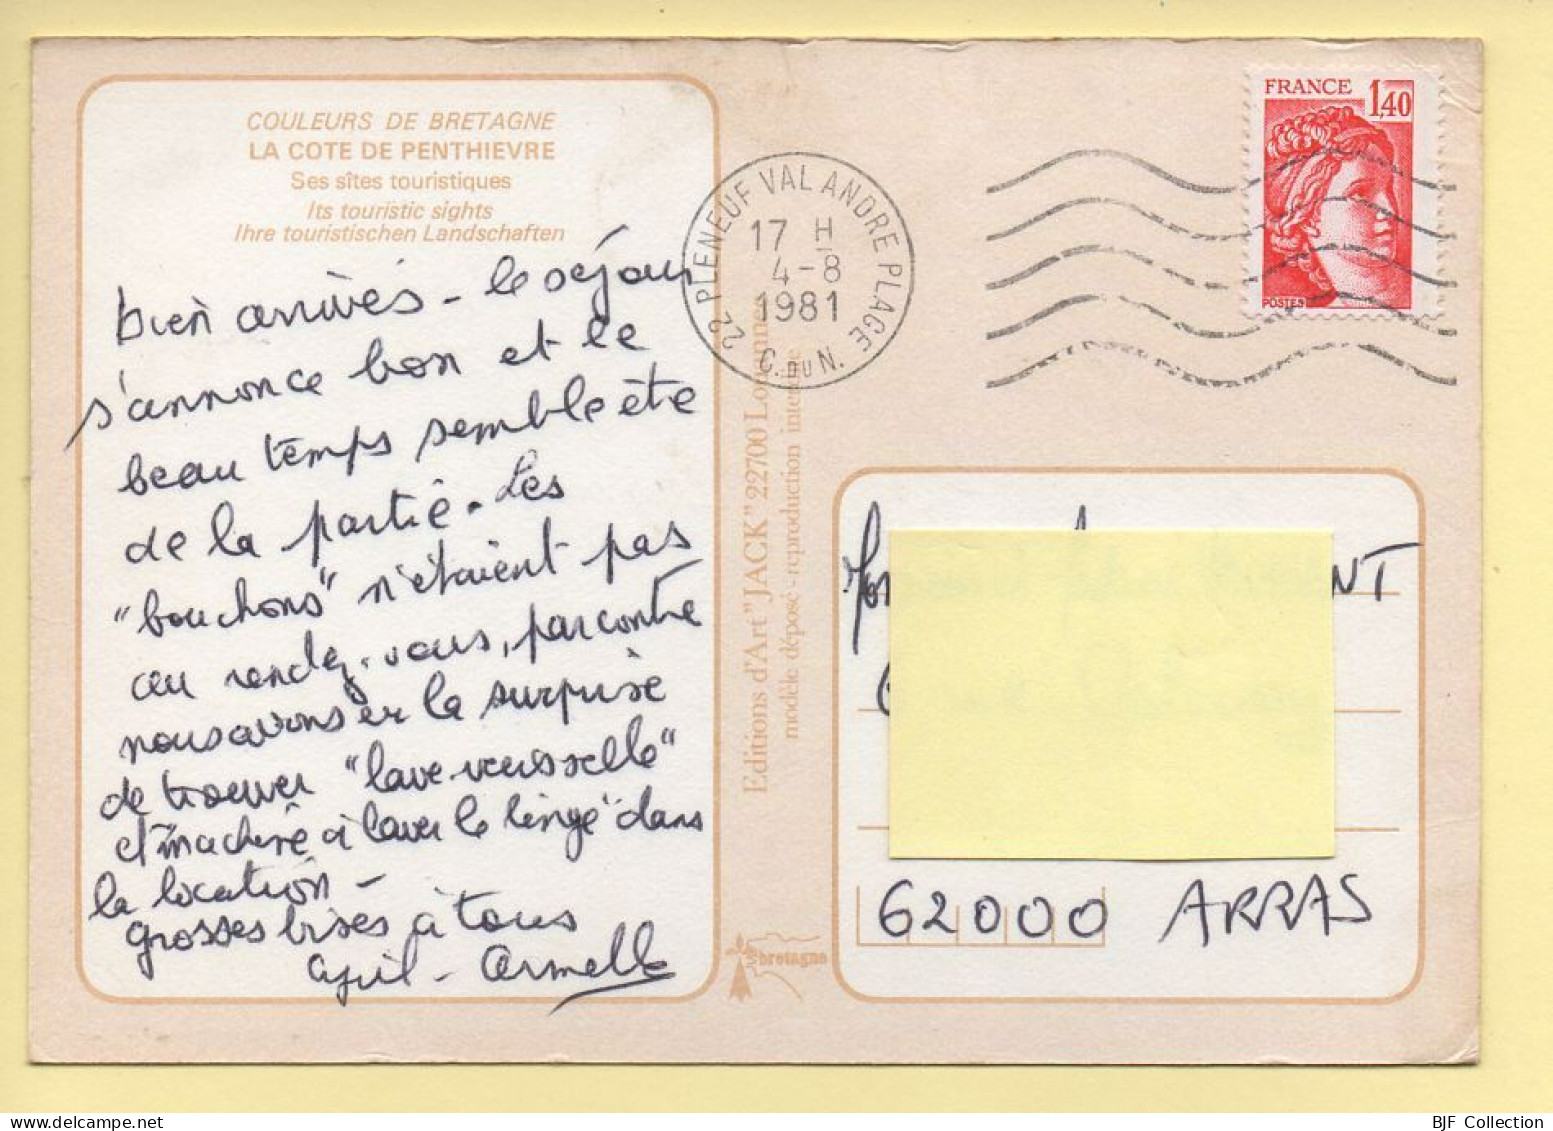 COULEURS DE BRETAGNE
LA COTE DE PENTHIEVRE
Ses sîtes touristiques
Its touristic sights
Ihre touristischen Landschaften
bien arrivés - le séjour
s'annonce bon et le
beau temps semble être
de la partie. Les
"bouchons" n'étaient pas
au rendez-vous, par contre
nous avons eu la surprise
de trouver "lave-vaisselle"
et "machine à laver le linge" dans
la location -
grosses bises à tous
- Armelle
22 PLENEUF VAL ANDRE PLAGE
17 H
4-8
1981
C. DU N.
FRANCE 1,40
POSTES
Editions d'Art "JACK" 22700 Louannec
modèle déposé - reproduction interdite
bretagne
NT
62000 ARRAS
BJF Collection